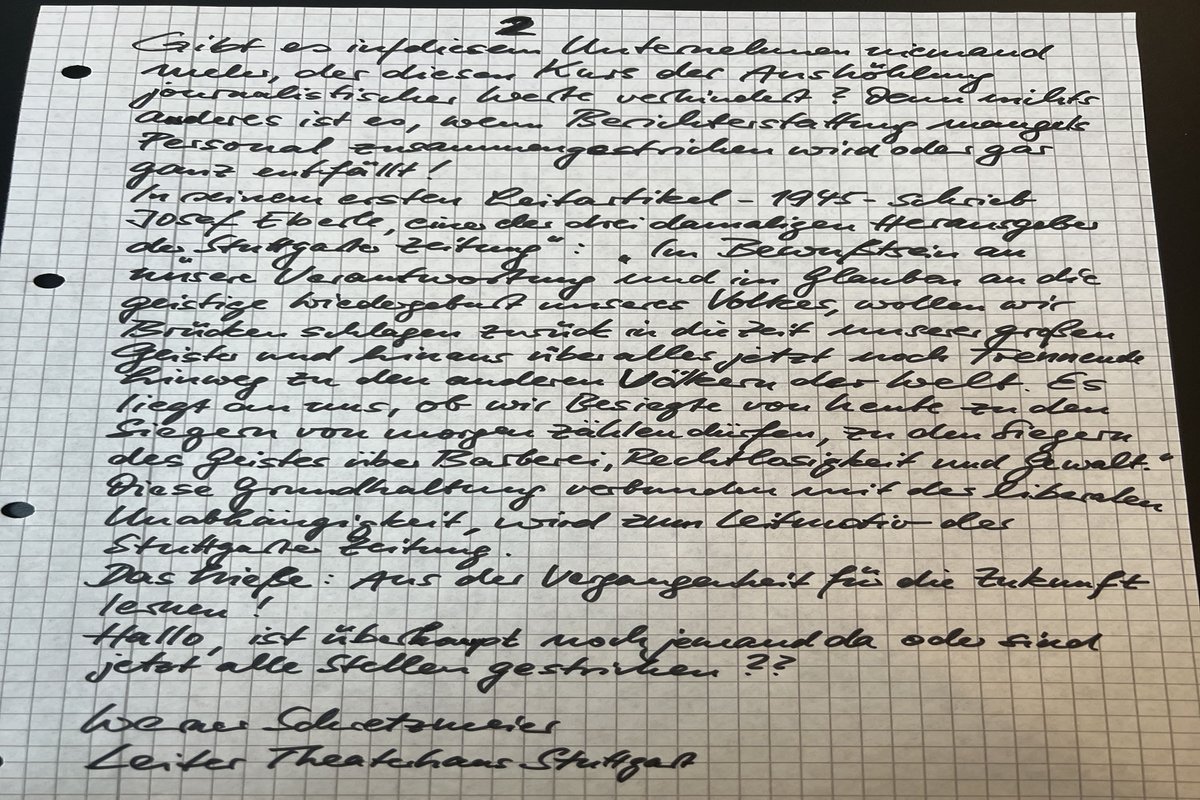 2
Gibt es in diesem Unternehmen niemand
mehr, der diesen Kurs der Aushöhlung
journalistischer Werte verhindert? Denn nichts
anderes ist es, wenn Berichterstattung mangels
Personal zusammengestrichen wird oder gar
ganz entfällt!
In seinem ersten Leitartikel - 1945 - schrieb
Josef Eberle, einer der drei damaligen Herausgeber
der Stuttgarter Zeitung": "Im Bewußtsein an
unsere Verantwortung und im Glauben an die
geistige Wiedergeburt unseres Volkes, wollen wir
Brücken schlagen zurück in die Zeit unserer großen
Geister und hinaus über alles jetzt noch Trennende
hinweg zu den anderen Völkern der Welt. Es
liegt an uns, ob wir Besiegte von heute zu den
Siegern von morgen zählen dürfen, zu den Siegern
des Geistes über Barberei, Rechtlosigkeit und Gewalt."
Diese Grundhaltung verbunden mit der liberalen
Unabhängigkeit, wird zum Leitmotiv der
Stuttgarter Zeitung.
Das hieße: Aus der Vergangenheit für die Zukunft
lernen!
Hallo, ist überhaupt noch jemand da oder sind
jetzt alle Stellen gestrichen ??
Werner Schretzmeier
Leiter Theaterhaus Stuttgart